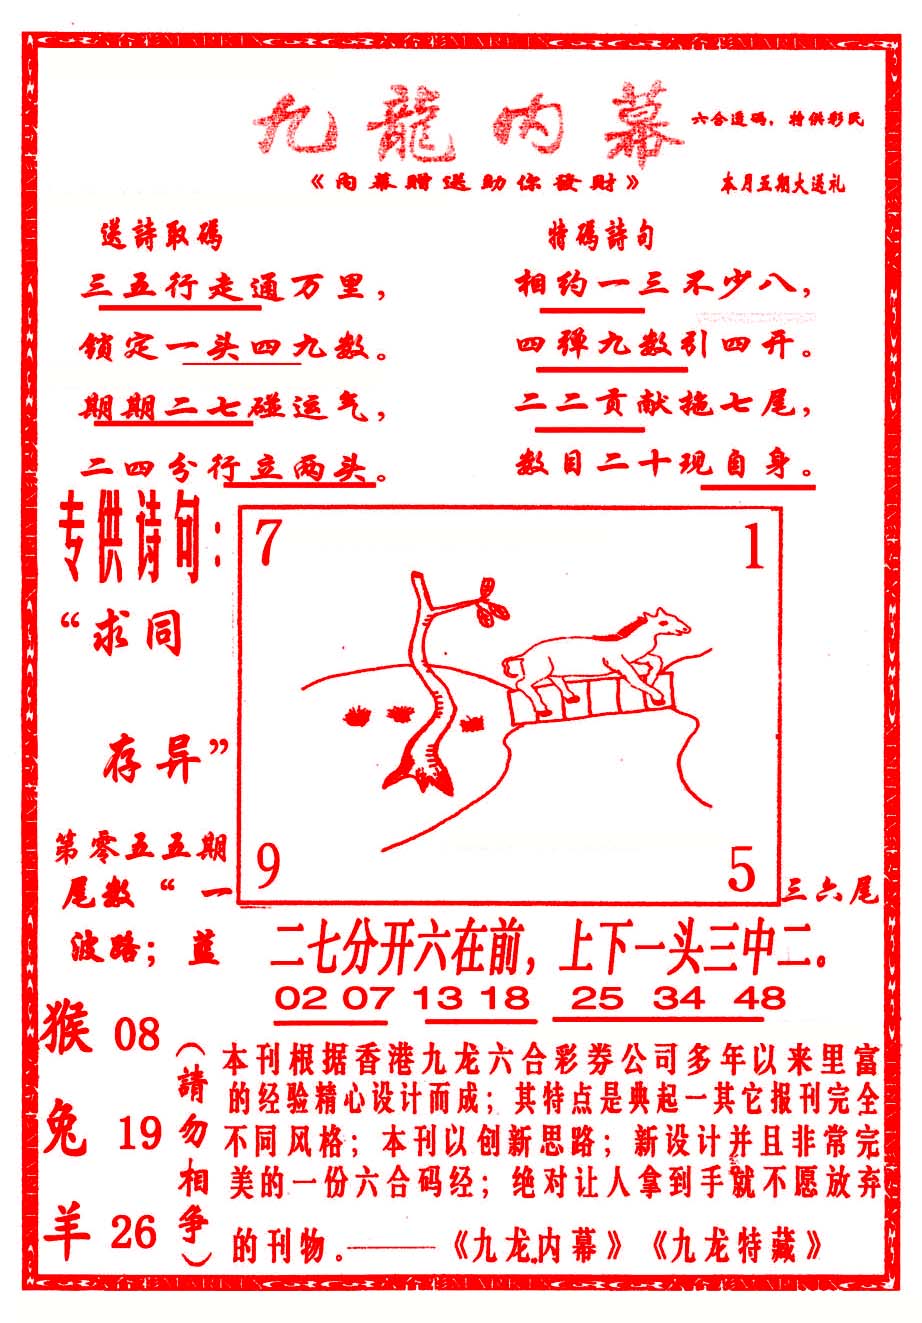 九龍内幕
六合透码，特供彩民
《内幕赠送助你發财》
本月五期大送礼
送詩取碼
三五行走通万里，
锁定一头四九数。
期期二七碰运气，
二四分行立两头。
特碼詩句
相约一三不少八，
四弹九数引四开。
二二贡献拖七尾，
数目二十现自身。
专供诗句：
“求同
存异”
7
1
9
5
第零五五期
尾数“一
三六尾
波路；蓝
二七分开六在前，上下一头三中二。
02 07 13 18 25 34 48
猴 08
兔 19
羊 26
（請勿相争）
本刊根据香港九龙六合彩券公司多年以来里富
的经验精心设计而成；其特点是典起一其它报刊完全
不同风格；本刊以创新思路；新设计并且非常完
美的一份六合码经；绝对让人拿到手就不愿放弃
的刊物。——《九龙内幕》《九龙特藏》